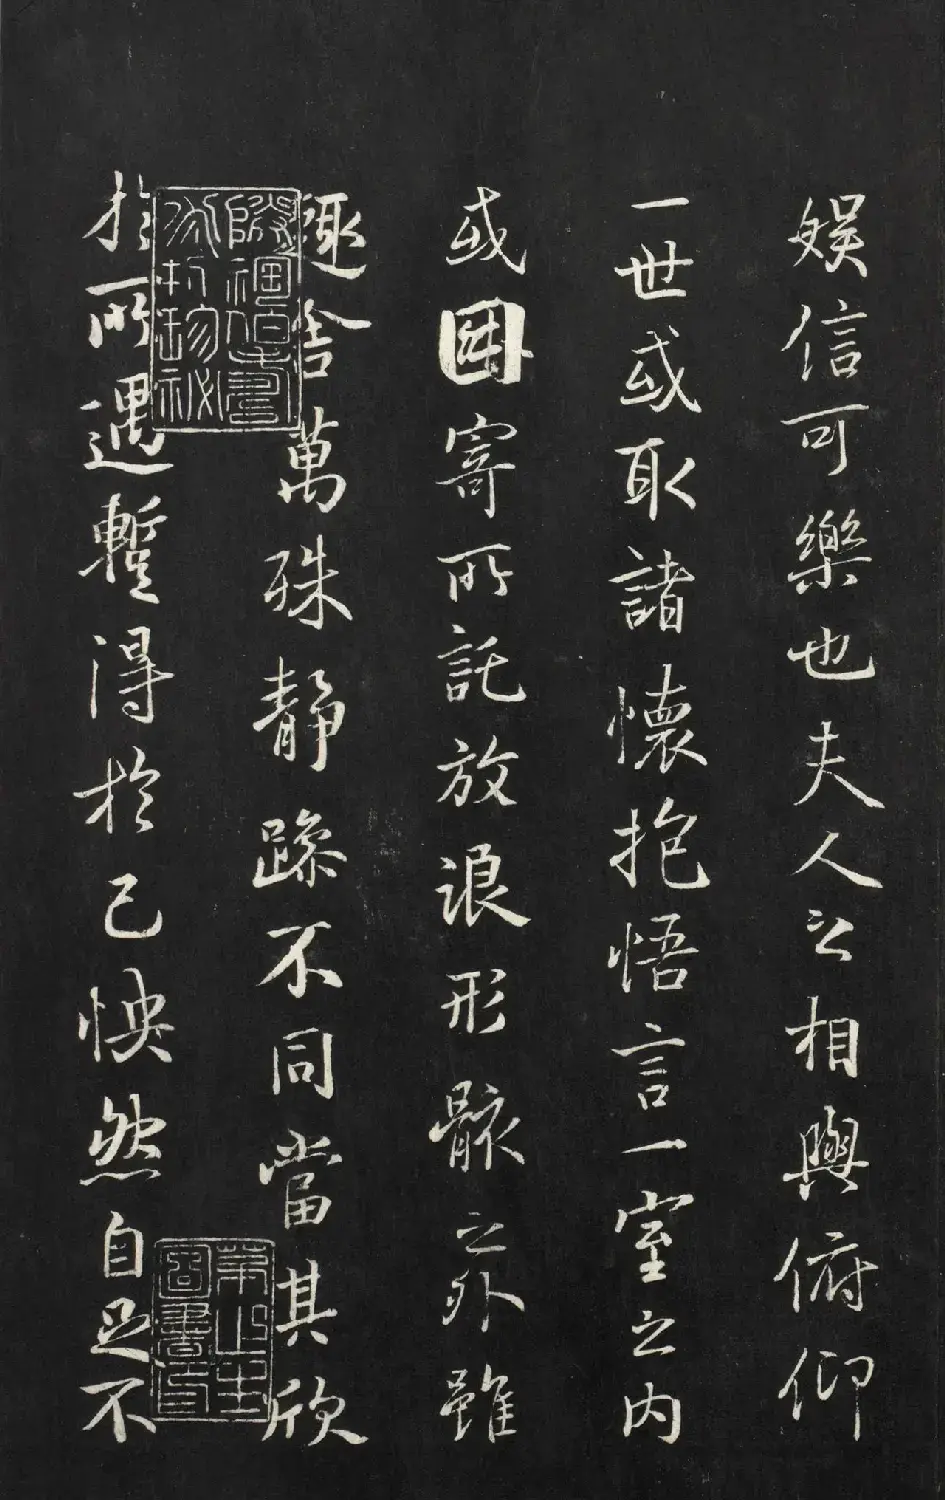 娛信可樂也夫人之相與俯仰
一世或取諸懷抱悟言一室之內
或因寄所託放浪形骸之外雖
趣舍萬殊靜躁不同當其欣
於所遇暫得於己怏然自足不